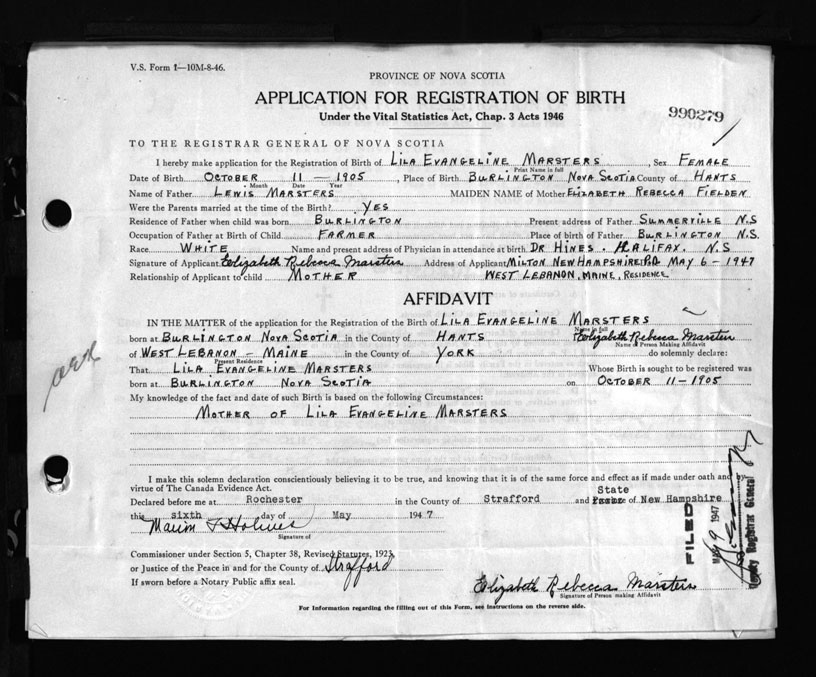 V.S. Form 1—10M-8-46.
PROVINCE OF NOVA SCOTIA
APPLICATION FOR REGISTRATION OF BIRTH
Under the Vital Statistics Act, Chap. 3 Acts 1946
990279
TO THE REGISTRAR GENERAL OF NOVA SCOTIA
I hereby make application for the Registration of Birth of LILA EVANGELINE MARSTERS, Sex FEMALE
Print Name in full
Date of Birth OCTOBER 11 — 1905, Place of Birth BURLINGTON NOVA SCOTIA County of HANTS
Month Date Year
Name of Father LEWIS MARSTERS MAIDEN NAME of Mother ELIZABETH REBECCA FIELDEN
Were the Parents married at the time of the Birth? YES
Residence of Father when child was born BURLINGTON Present address of Father SUMMERVILLE N.S
Occupation of Father at Birth of Child FARMER Place of birth of Father BURLINGTON N.S.
Race WHITE Name and present address of Physician in attendance at birth DR HINES. HALIFAX. N.S
Signature of Applicant Elizabeth Rebecca Marsters Address of Applicant MILTON NEW HAMPSHIRE MAY 6 - 1947
Relationship of Applicant to child MOTHER WEST LEBANON, MAINE, RESIDENCE
AFFIDAVIT
IN THE MATTER of the application for the Registration of the Birth of LILA EVANGELINE MARSTERS
Name in full
born at BURLINGTON NOVA SCOTIA in the County of HANTS Elizabeth Rebecca Marsters
Name of Person Making Affidavit
of WEST LEBANON — MAINE in the County of YORK do solemnly declare:
Present Residence
That LILA EVANGELINE MARSTERS Whose Birth is sought to be registered was
born at BURLINGTON NOVA SCOTIA on OCTOBER 11 - 1905
My knowledge of the fact and date of such Birth is based on the following Circumstances:
MOTHER OF LILA EVANGELINE MARSTERS
I make this solemn declaration conscientiously believing it to be true, and knowing that it is of the same force and effect as if made under oath and by
virtue of The Canada Evidence Act.
State
Declared before me at Rochester in the County of Strafford and of New Hampshire
this sixth day of May 1947
Signature of
Commissioner under Section 5, Chapter 38, Revised Statutes, 1923,
or Justice of the Peace in and for the County of Strafford
If sworn before a Notary Public affix seal.
Elizabeth Rebecca Marsters
Signature of Person making Affidavit
For Information regarding the filling out of this Form, see instructions on the reverse side.
FILED
MAY 9 1947
Deputy Registrar General